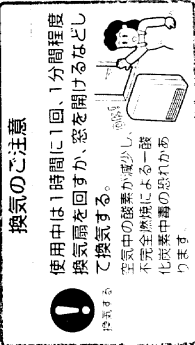 換気のご注意
換気する
使用中は1時間に1回、1分間程度
換気扇を回すか、窓を開けるなどし
て換気する。
空気中の酸素が減少し、
不完全燃焼による一酸
化炭素中毒の恐れがあ
ります。